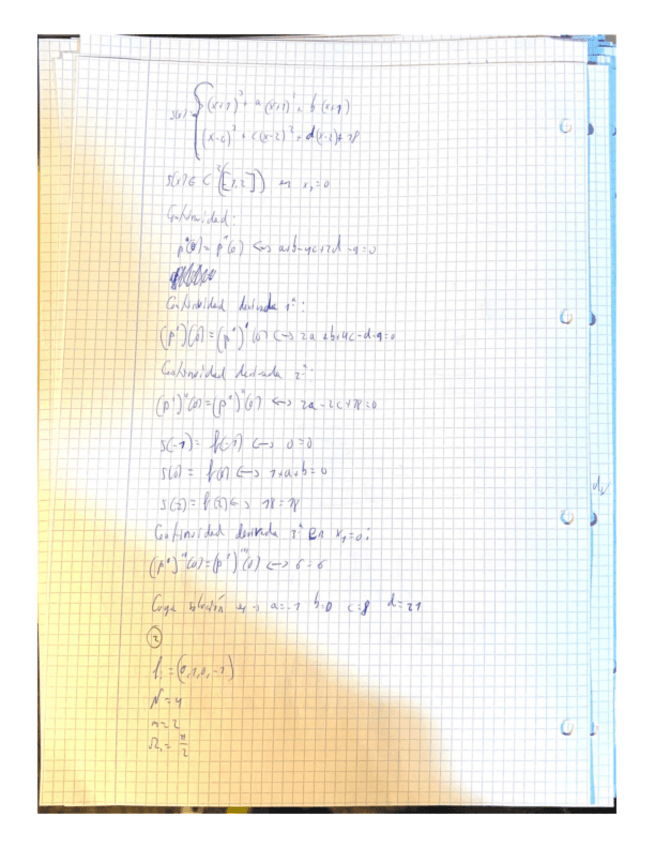 s(x) = { (x+1)³ + a(x+1)² + b(x+1)
(x-2)³ + c(x-2)² + d(x-2) + 18
s(x) ∈ C²([-1,2]) en x₁=0
Continuidad:
p¹(0) = p²(0) <-> a+b-4c+2d-9=0
Continuidad derivada 1ª:
(p¹)'(0) = (p²)'(0) <-> 2a+b+4c-d-9=0
Continuidad derivada 2ª:
(p¹)''(0) = (p²)''(0) <-> 2a-2c+18=0
s(-1) = f(-1) <-> 0=0
s(0) = f(0) <-> 1+a+b=0
s(2) = f(2) <-> 18=18
Continuidad derivada 3ª en x₁=0:
(p¹)'''(0) = (p²)'''(0) <-> 6=6
Cuya solución es -> a=-1 b=0 c=8 d=21
②
f₁ = (0,1,0,-1)
N=4
n=2
Ω₁ = π/2